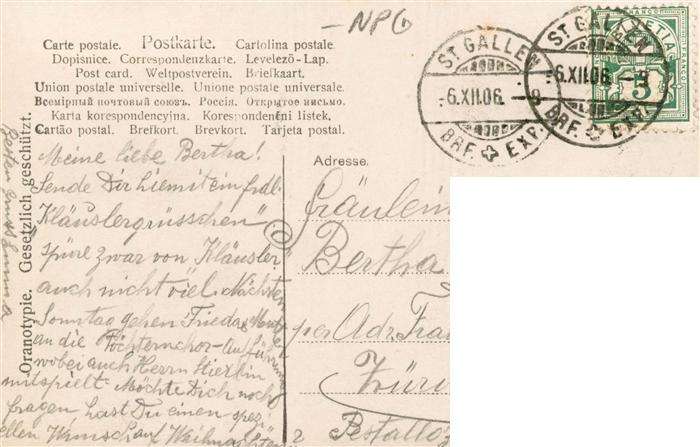 -NPG
Carte postale. Postkarte. Cartolina postale.
Dopisnice. Correspondenzkarte. Levelező-Lap.
Post card. Weltpostverein. Briefkaart.
Union postale universelle. Unione postale universale.
Всемірный почтовый союзъ. Россія. Открытое письмо.
Karta korespondencyjna. Korespondenční listek.
Cartão postal. Brefkort. Brevkort. Tarjeta postal.
ST GALLEN
-6.XII.06.-8
BRF. EXP.
ST GALLEN
-6.XII.06.-8
BRF. EXP.
HELVETIA
5
Oranotypie. Gesetzlich geschützt.
Meine liebe Bertha!
Sende Dir hiemit ein frdl.
"Kläuslergrüsschen"
spüre zwar von Kläusler
auch nicht viel. Nächsten
Sonntag gehen Frieda
an die Töchternchor-Aufführung
wobei auch Herrn
mitspielt. Möchte Dich noch
fragen hast Du einen spez-
iellen Wunsch auf Weihnachten
Adresse.
Fräulein
Bertha
per Adr. Frau
Züri
Pestalloz
2